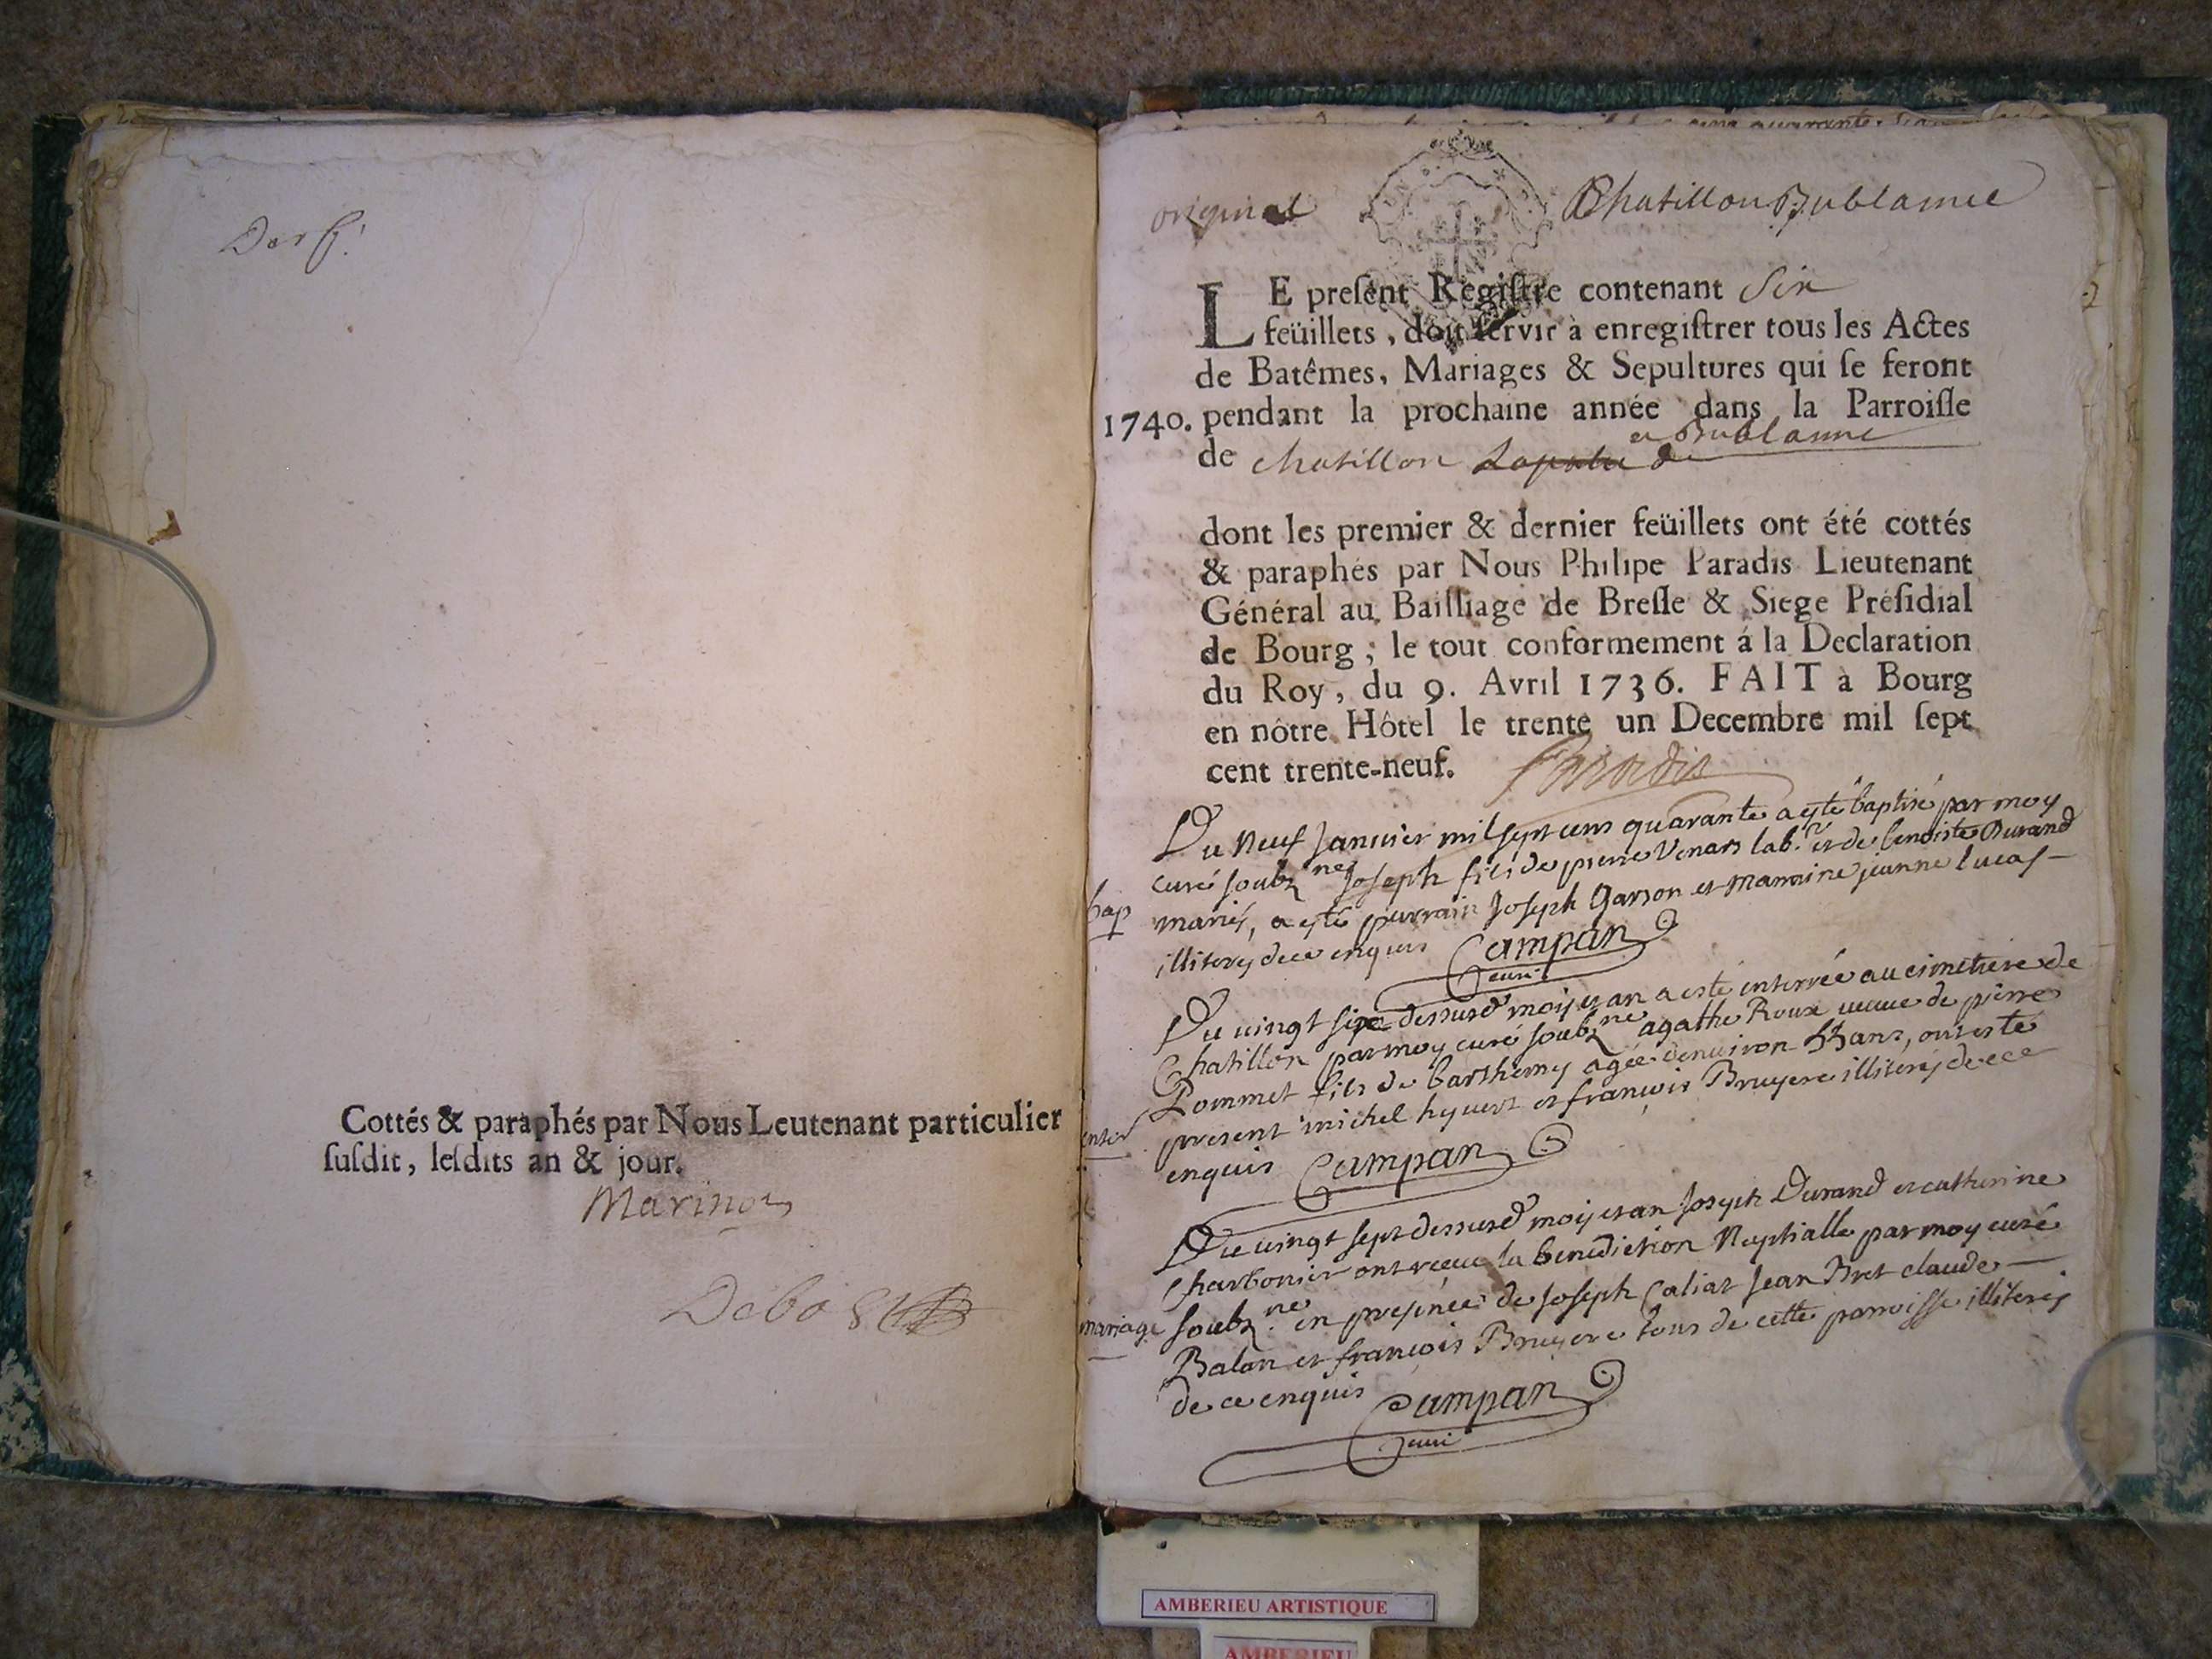 Cottés & paraphés par Nous Leutenant particulier
ſuſdit, leſdits an & jour.
Marinon
original
Chatillon Bublanne
LE preſent Regiſtre contenant Six
feüillets, doit ſervir à enregiſtrer tous les Actes
de Batêmes, Mariages & Sepultures qui ſe feront
1740. pendant la prochaine année dans la Parroiſſe
et Bublanne
de chatillon Lapalu de
dont les premier & dernier feüillets ont été cottés
& paraphés par Nous Philipe Paradis Lieutenant
Général au Bailliage de Breſſe & Siege Préſidial
de Bourg ; le tout conformement á la Declaration
du Roy, du 9. Avril 1736. FAIT à Bourg
en nôtre Hôtel le trente un Decembre mil ſept
cent trente-neuf. Paradis
Du Neuf Janvier mil sept cens quarante a esté baptisé par moy
curé soubz.né Joseph fils de pierre Venars lab.r et de benoiste Durand
bap mariés, a esté parrain Joseph Garson et marraine jeanne lucas
illiterés de ce enquis Campan
curé
Du vingt six dessusd moys et an a esté enterrée au cimetiere de
Chatillon par moy curé soubz.né agathe Roux veuve de pierre
Pommet fils de barthemy agée denviron ans, ont esté
enter present michel hyvert et françois Bruyere illiterés de ce
enquis Campan
Du vingt sept dessusd moys et an Joseph Durand et catherine
Charbonier ont receu la benediction Nuptialle par moy curé
mariage soubz.né en presence de Joseph Caliat Jean Bret claude
Balan et françois Bruyere tous de cette parroisse illiterés
de ce enquis Campan
curé
AMBERIEU ARTISTIQUE
AMBERIEU